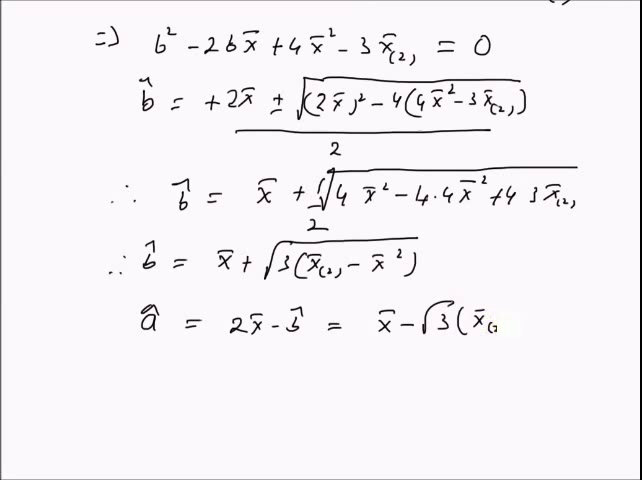 ⇒ b² - 2bx̄ + 4x̄² - 3x̄₍₂₎ = 0
b̂ = +2x̄ ± √((2x̄)² - 4(4x̄² - 3x̄₍₂₎)) / 2
∴ b̂ = x̄ + 1/2 √(4x̄² - 4·4x̄² + 4 3x̄₍₂₎
∴ b̂ = x̄ + √(3(x̄₍₂₎ - x̄²))
â = 2x̄ - b̂ = x̄ - √3(x̄₍₂